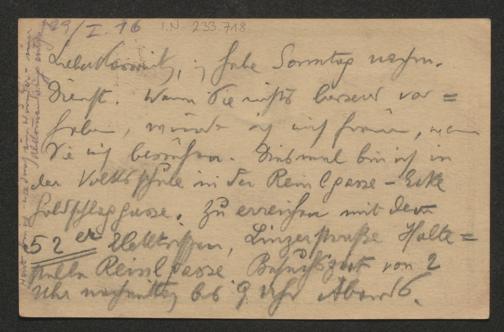 29/I. 16 I.N. 233.718
Lieber , ich habe Sonntag nachm.
Dienst. Wenn Sie nichts besseres vor=
haben, würde es mich freuen, wenn
Sie mich besuchen. Diesmal bin ich in
der Volksschule in der Reinlgasse - Ecke
Goldschlaggasse. Zu erreichen mit dem
52er , Linzerstraße Halte=
stelle Reinlgasse Besuchszeit von 2
Uhr nachmittag bis 9 Uhr Abends.